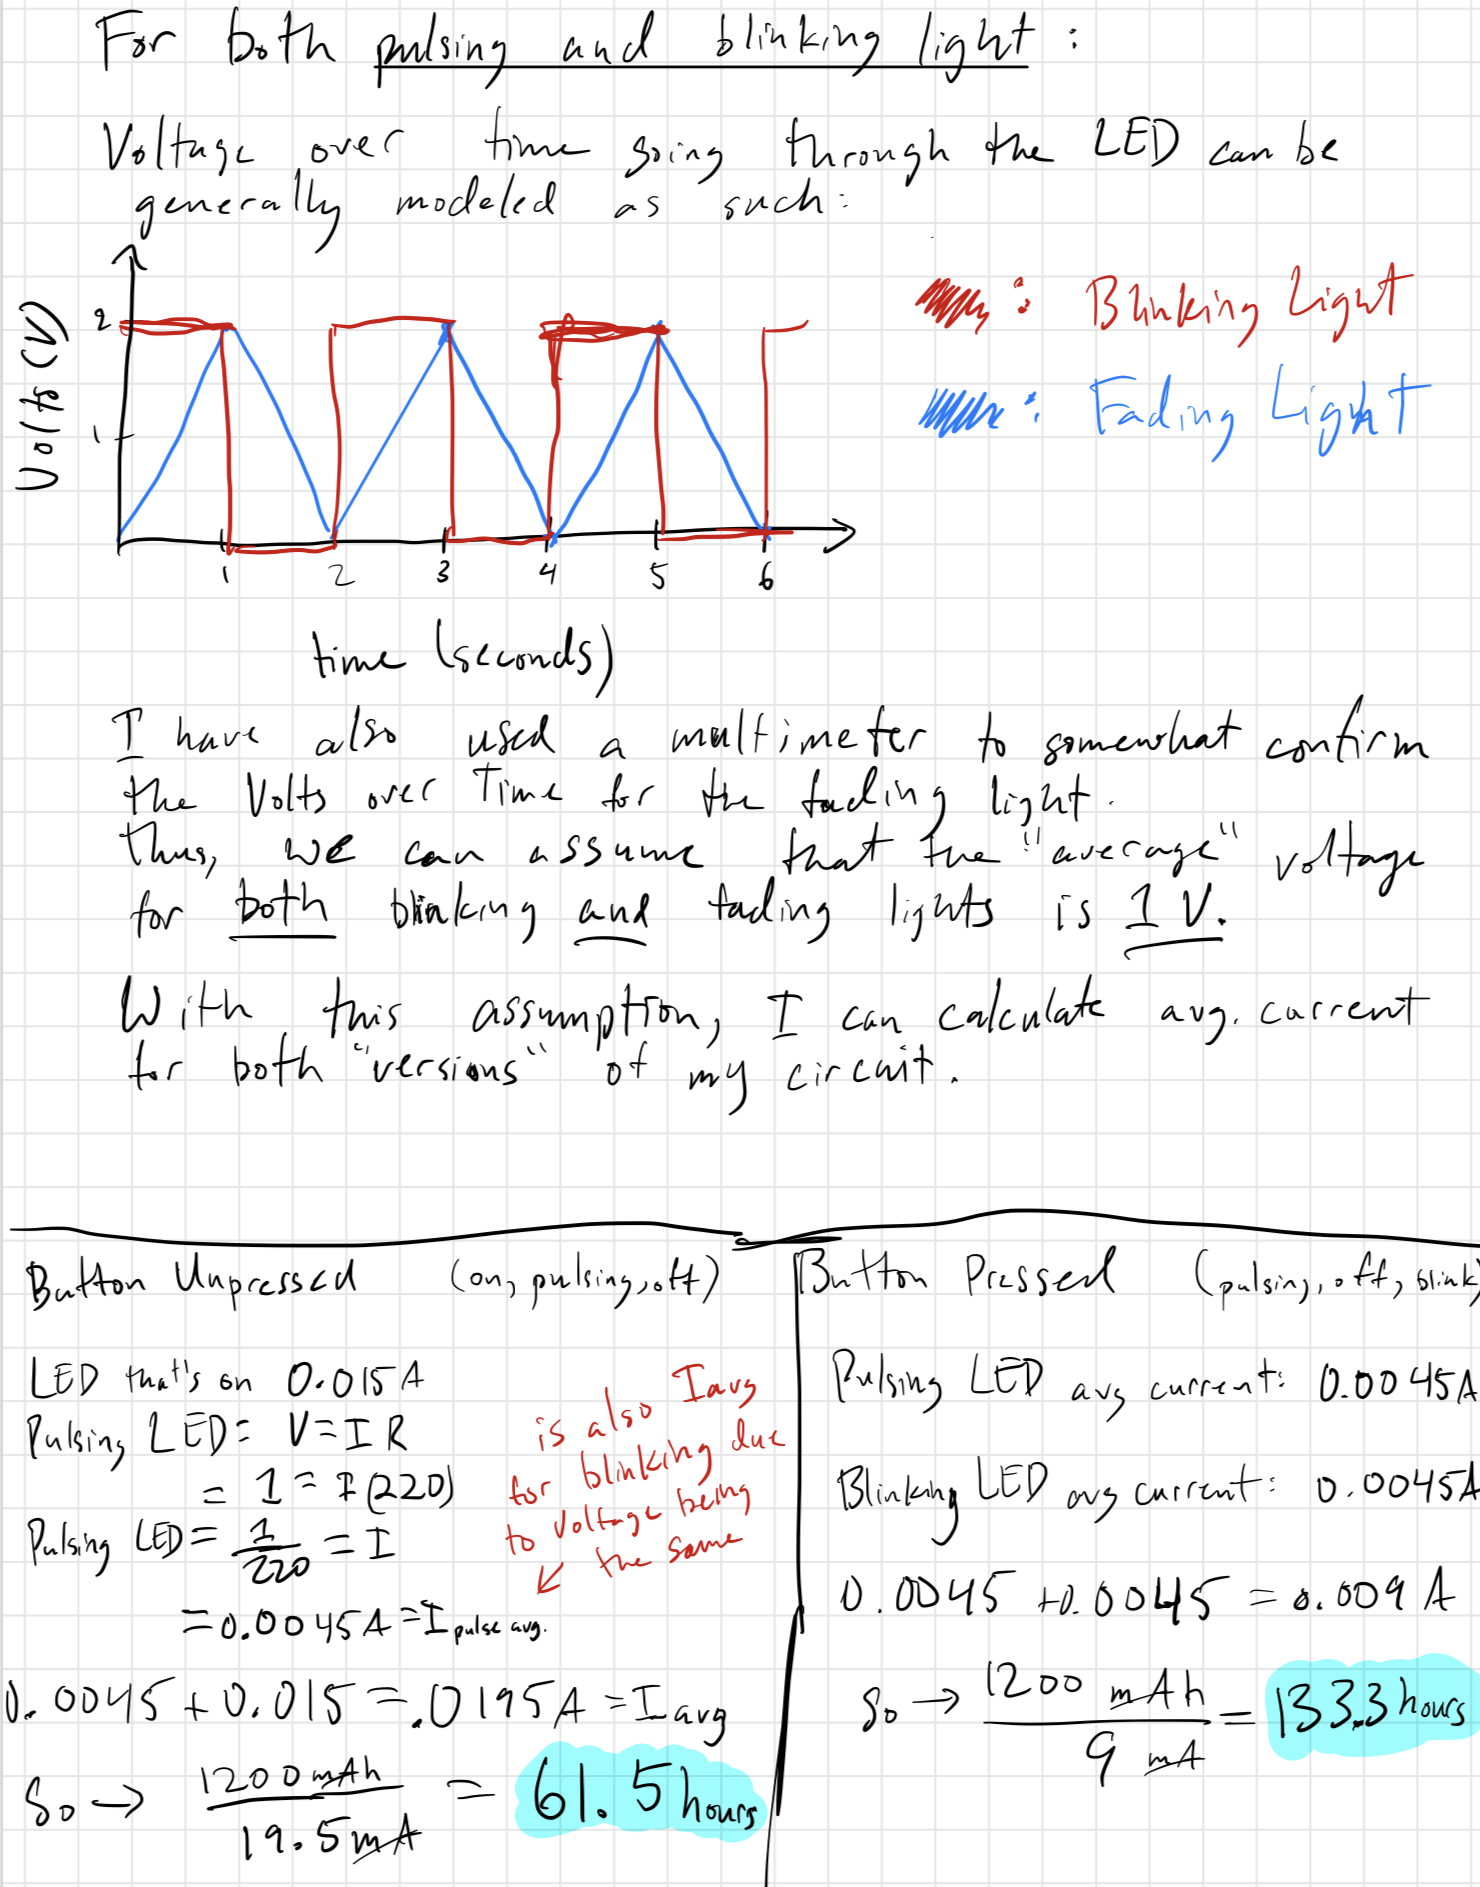 For both pulsing and blinking light:
Voltage over time going through the LED can be
generally modeled as such:
Volts (V)
2
1
: Blinking Light
: Fading Light
1 2 3 4 5 6
time (seconds)
I have also used a multimeter to somewhat confirm
the Volts over Time for the fading light.
Thus, we can assume that the "average" voltage
for both blinking and fading lights is 1 V.
With this assumption, I can calculate avg. current
for both "versions" of my circuit.
Button Unpressed (on, pulsing, off)
LED that's on 0.015A
Pulsing LED = V=IR
= 1 = I(220)
Pulsing LED = 1/220 = I
= 0.0045A = I pulse avg.
is also Iavg
for blinking due
to voltage being
the same
0.0045 + 0.015 = .0195A = I avg
So → 1200 mAh / 19.5 mA = 61.5 hours
Button Pressed (pulsing, off, blink)
Pulsing LED avg current: 0.0045A
Blinking LED avg current: 0.0045A
0.0045 + 0.0045 = 0.009 A
So → 1200 mAh / 9 mA = 133.3 hours